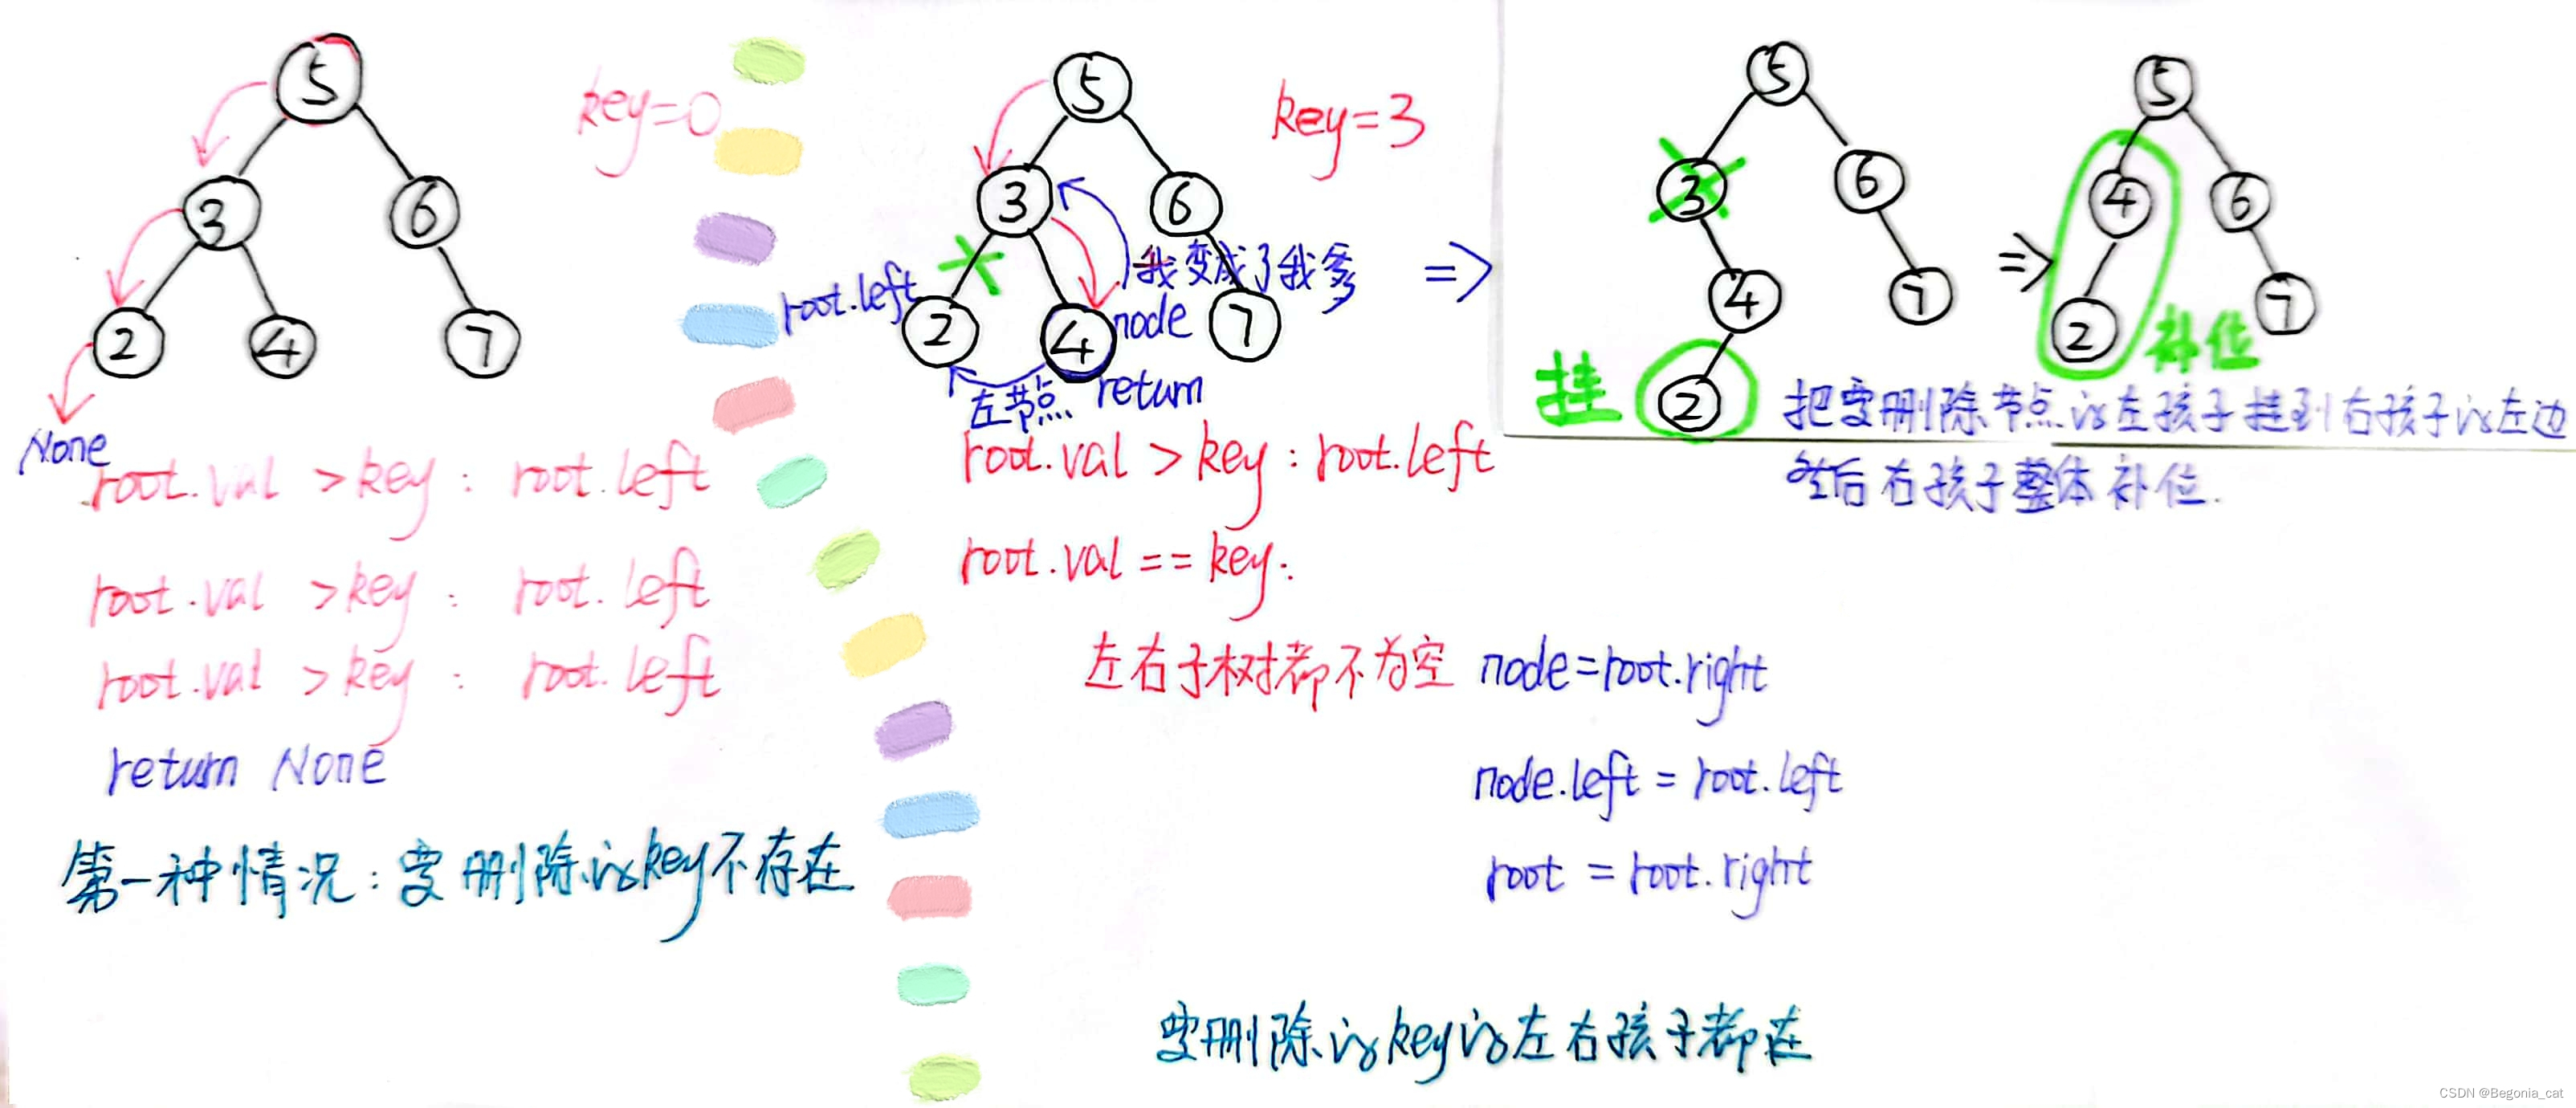 5
3
6
2
4
7
None
key=0
root.val >key : root.left
root.val >key : root.left
root.val >key : root.left
return None
第一种情况:要删除的key不存在
5
3
6
2
4
7
key=3
root.left
node
我变成了我爹
左节点
return
root.val >key : root.left
root.val == key:
左右子树都不为空
node=root.right
node.left = root.left
root = root.right
要删除的key的左右孩子都在
=>
5
3
6
4
7
2
挂
=>
5
4
6
2
7
补位
把要删除节点的左孩子挂到右孩子的左边
然后右孩子整体补位.
CSDN @Begonia_cat